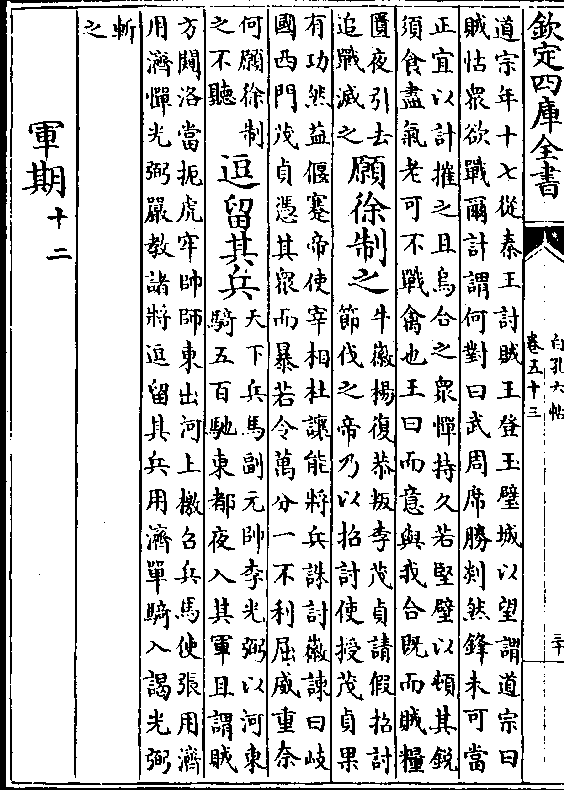 欽定四庫全書
白孔六帖
卷五十三
三十
道宗年十七從秦王討賊王登玉壁城以望謂道宗曰
賊怙衆欲戰爾計謂何對曰武周席勝剡然鋒未可當
正宜以計摧之且烏合之衆憚持久若堅壁以頓其銳
須食盡氣老可不戰禽也王曰而意與我合既而賊糧
匱夜引去
追戰滅之
願徐制之
牛徽楊復恭叛李茂貞請假招討
節伐之帝乃以招討使授茂貞果
有功然益偃蹇帝使宰相杜讓能將兵誅討徽諫曰岐
國西門茂貞憑其衆而暴若令萬分一不利屈威重奈
何願徐制
之不聽
逗留其兵
天下兵馬副元帥李光弼以河東
騎五百馳東都夜入其軍且謂賊
方闚洛當扼虎牢帥師東出河上檄召兵馬使張用濟
用濟憚光弼嚴教諸將逗留其兵用濟單騎入謁光弼
斬
之
軍期十二